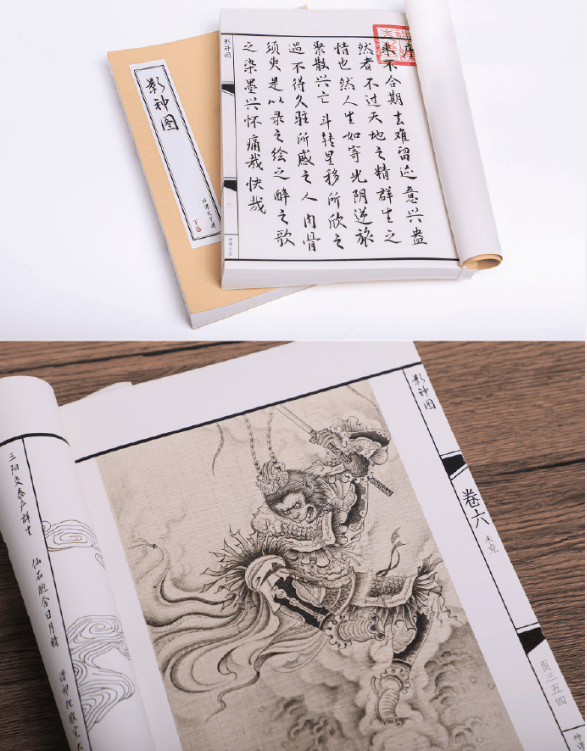 影神图
序
来不合期去难留迹意兴蛊
然者不过天地之精群生之
情也然人生如寄光阴逆旅
聚散兴亡斗转星移所欣之
遇不得久驻所感之人肉骨
须臾是以录之绘之醉之歌
之染墨兴怀痛哉快哉
影神图
影神图
卷六
未竟
页三五四
三阳交泰产群生
仙石胞含日月精
借卵化猴完